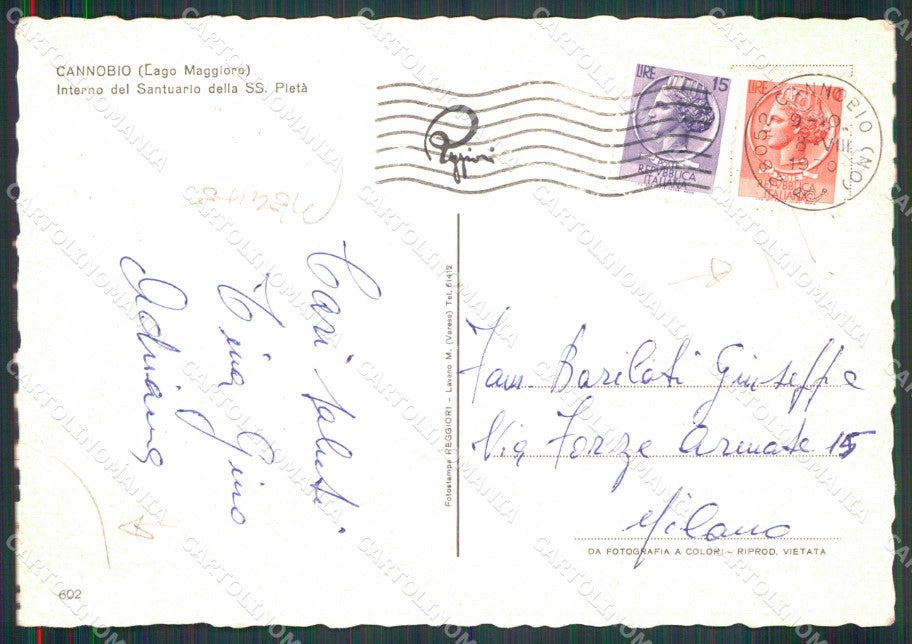 CANNOBIO (Lago Maggiore)
Interno del Santuario della SS. Pietà
Reggiori
LIRE 15
POSTE
REPUBBLICA
ITALIANA
LIRE
POSTE
REPUBBLICA
ITALIANA
CANNOBIO (NO)
VIII
Cari saluti
Tina Gino
Adriana
Fotostampa REGGIORI - Laveno M. (Varese) Tel. 61412
Fam. Barilati Giuseppe
Via Forze Armate 15
Milano
DA FOTOGRAFIA A COLORI - RIPROD. VIETATA
602
CARTOLINOMANIA